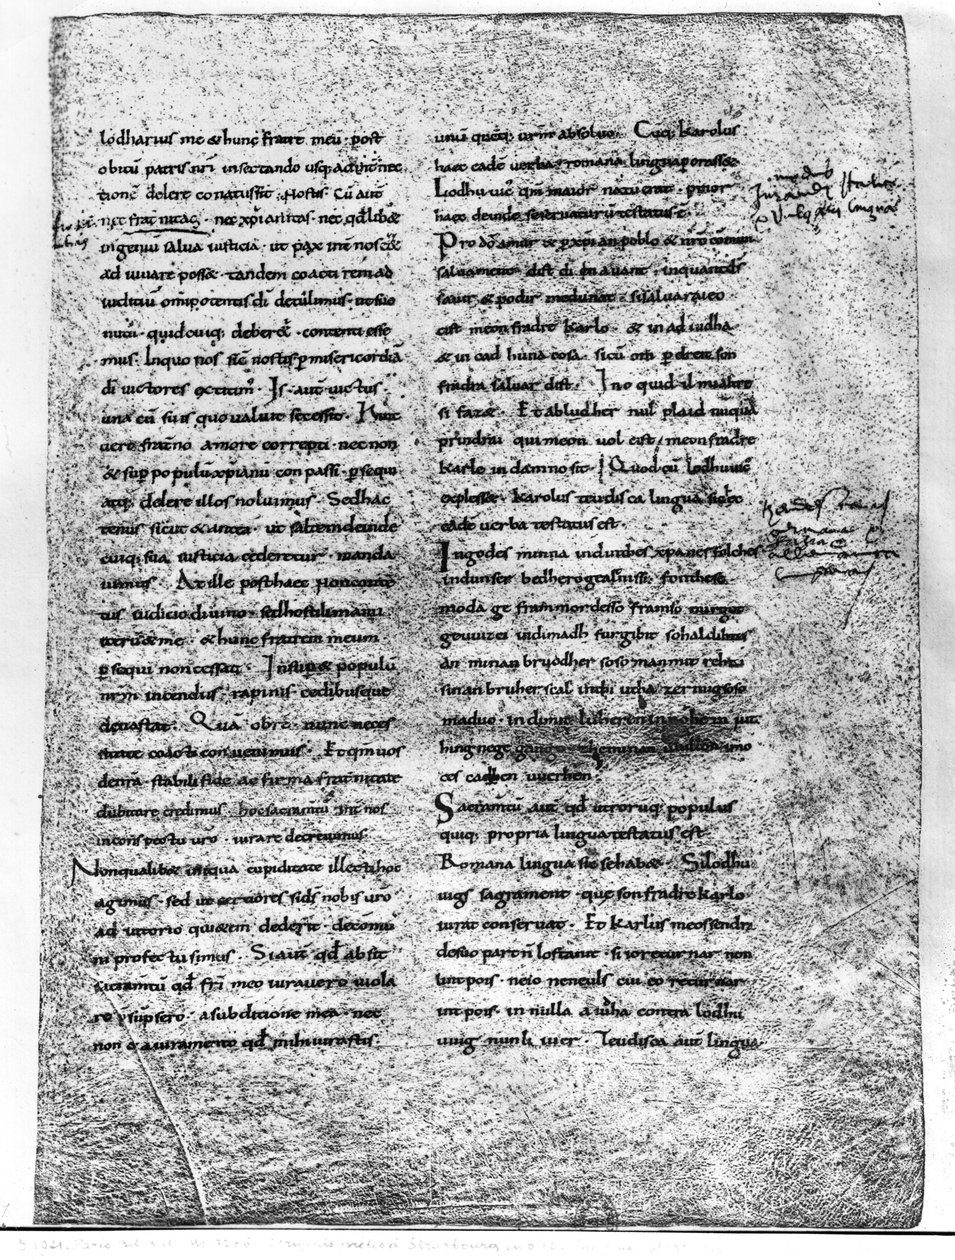 lodharius me & hunc fratrē meū · post
obitū patris nr̄i insectando usq; ad int̄nec
tionē delere conatus sit · nostis · Cū aut̄
nec frat̄nitas · nec xp̄ianitas · nec qd̄lib&
ingeniū salva iusticia · ut pax int̄ nos ēē&
adiuvare poss& · tandem coacti rem ad
iuditiū om̄ipotentis dī detulimus · ut suo
nutu · quid cuiq; deber& · contenti esse
mus · Inquo nos sic̄ nostis p misericordiā
dī victores
una cū suis quo valuit secessit · Hinc
vero frat̄no amore correpti · nec non
& sup populū xp̄ianū conpassi · psequi
atq; delere illos noluimus · Sed hac
tenus sicut & antea · ut saltem deinde
cuiq; sua iusticia cederetur · manda
vimus · At ille post haec non conten
tus iudicio divino · sed hostili manu
iterū & me · & hunc fratrem meum
psequi non cessat · Insup & populū
nr̄m incendiis · rapinis · cedibusque
devastat · Qua obrē · nunc neces
sitate coacti convenimus · Et qm̄ vos
de nr̄a · stabili fide ac firma frat̄nitate
dubitare credimus · hoc sacramtū int̄ nos
in conspectu vr̄o · iurare decrevimus
Non qualib& iniqua cupiditate illecti hoc
agimus · sed ut certiores si ds̄ nobis vr̄o
adiutorio quietem dederit · de comū
ni profectu simus · Si aut̄ qd̄ absit
sacramtū qd̄ fr̄i meo iuravero viola
re psūpsero · a subditione mea · nec
non & a iuramento qd̄ mihi iurastis ·
unū quēq; vr̄m absolvo · Cūq; karolus
haec eadē verba romana lingua porass&
Lodhuvic̄ qm̄ maior natu erat · prior
haec deinde se servaturū testatus ē ·
Pro dō amur & p xp̄ian poblo & nr̄o cōmun
salvament · dist di en avant · inquant dš
savir & podir me dunat · si salvarai eo
cist meon fradre karlo · & in ad iudha
& in cad huna cosa · sicū om p dreit son
fradra salvar dist · In o quid il mi altre
si faz& · Et ab ludher nul plaid nūquā
prindrai qui meon vol cist · meon fradre
karlo in damno sit · Quod cū lodhuvic̄
expless& · karolus teudisca lingua sic̄
eadē verba testatus est ·
In godes minna ind in thes xp̄anes folches
ind unser bedhero gealtnissi · fon thesē
moda ge frammordesso fram so mirgot
geuuizci indi madh furgibit so haldih
an minan bruodher soso man mit rehtu
sinan bruher scal inthi utha zermigsoso
maduo · indi mit luheren in nohe in nut
hing nege
ces cadhen uuerhen ·
Sacramtū aut̄ qd̄ utrorūq; populus
quiq; propria lingua testatus est ·
Romana lingua sic̄ se hab& · Silodhu
uigs sagrament · que son fradre karlo
iurat conservat · Et karlus meos sendra
de suo part n̄ lostanit · si io returnar non
lint pois · ne io ne neuls cui eo returnar
int pois · in nulla aiuha contra lodhu
uuig nun li iuer · Teudisca aut̄ lingua